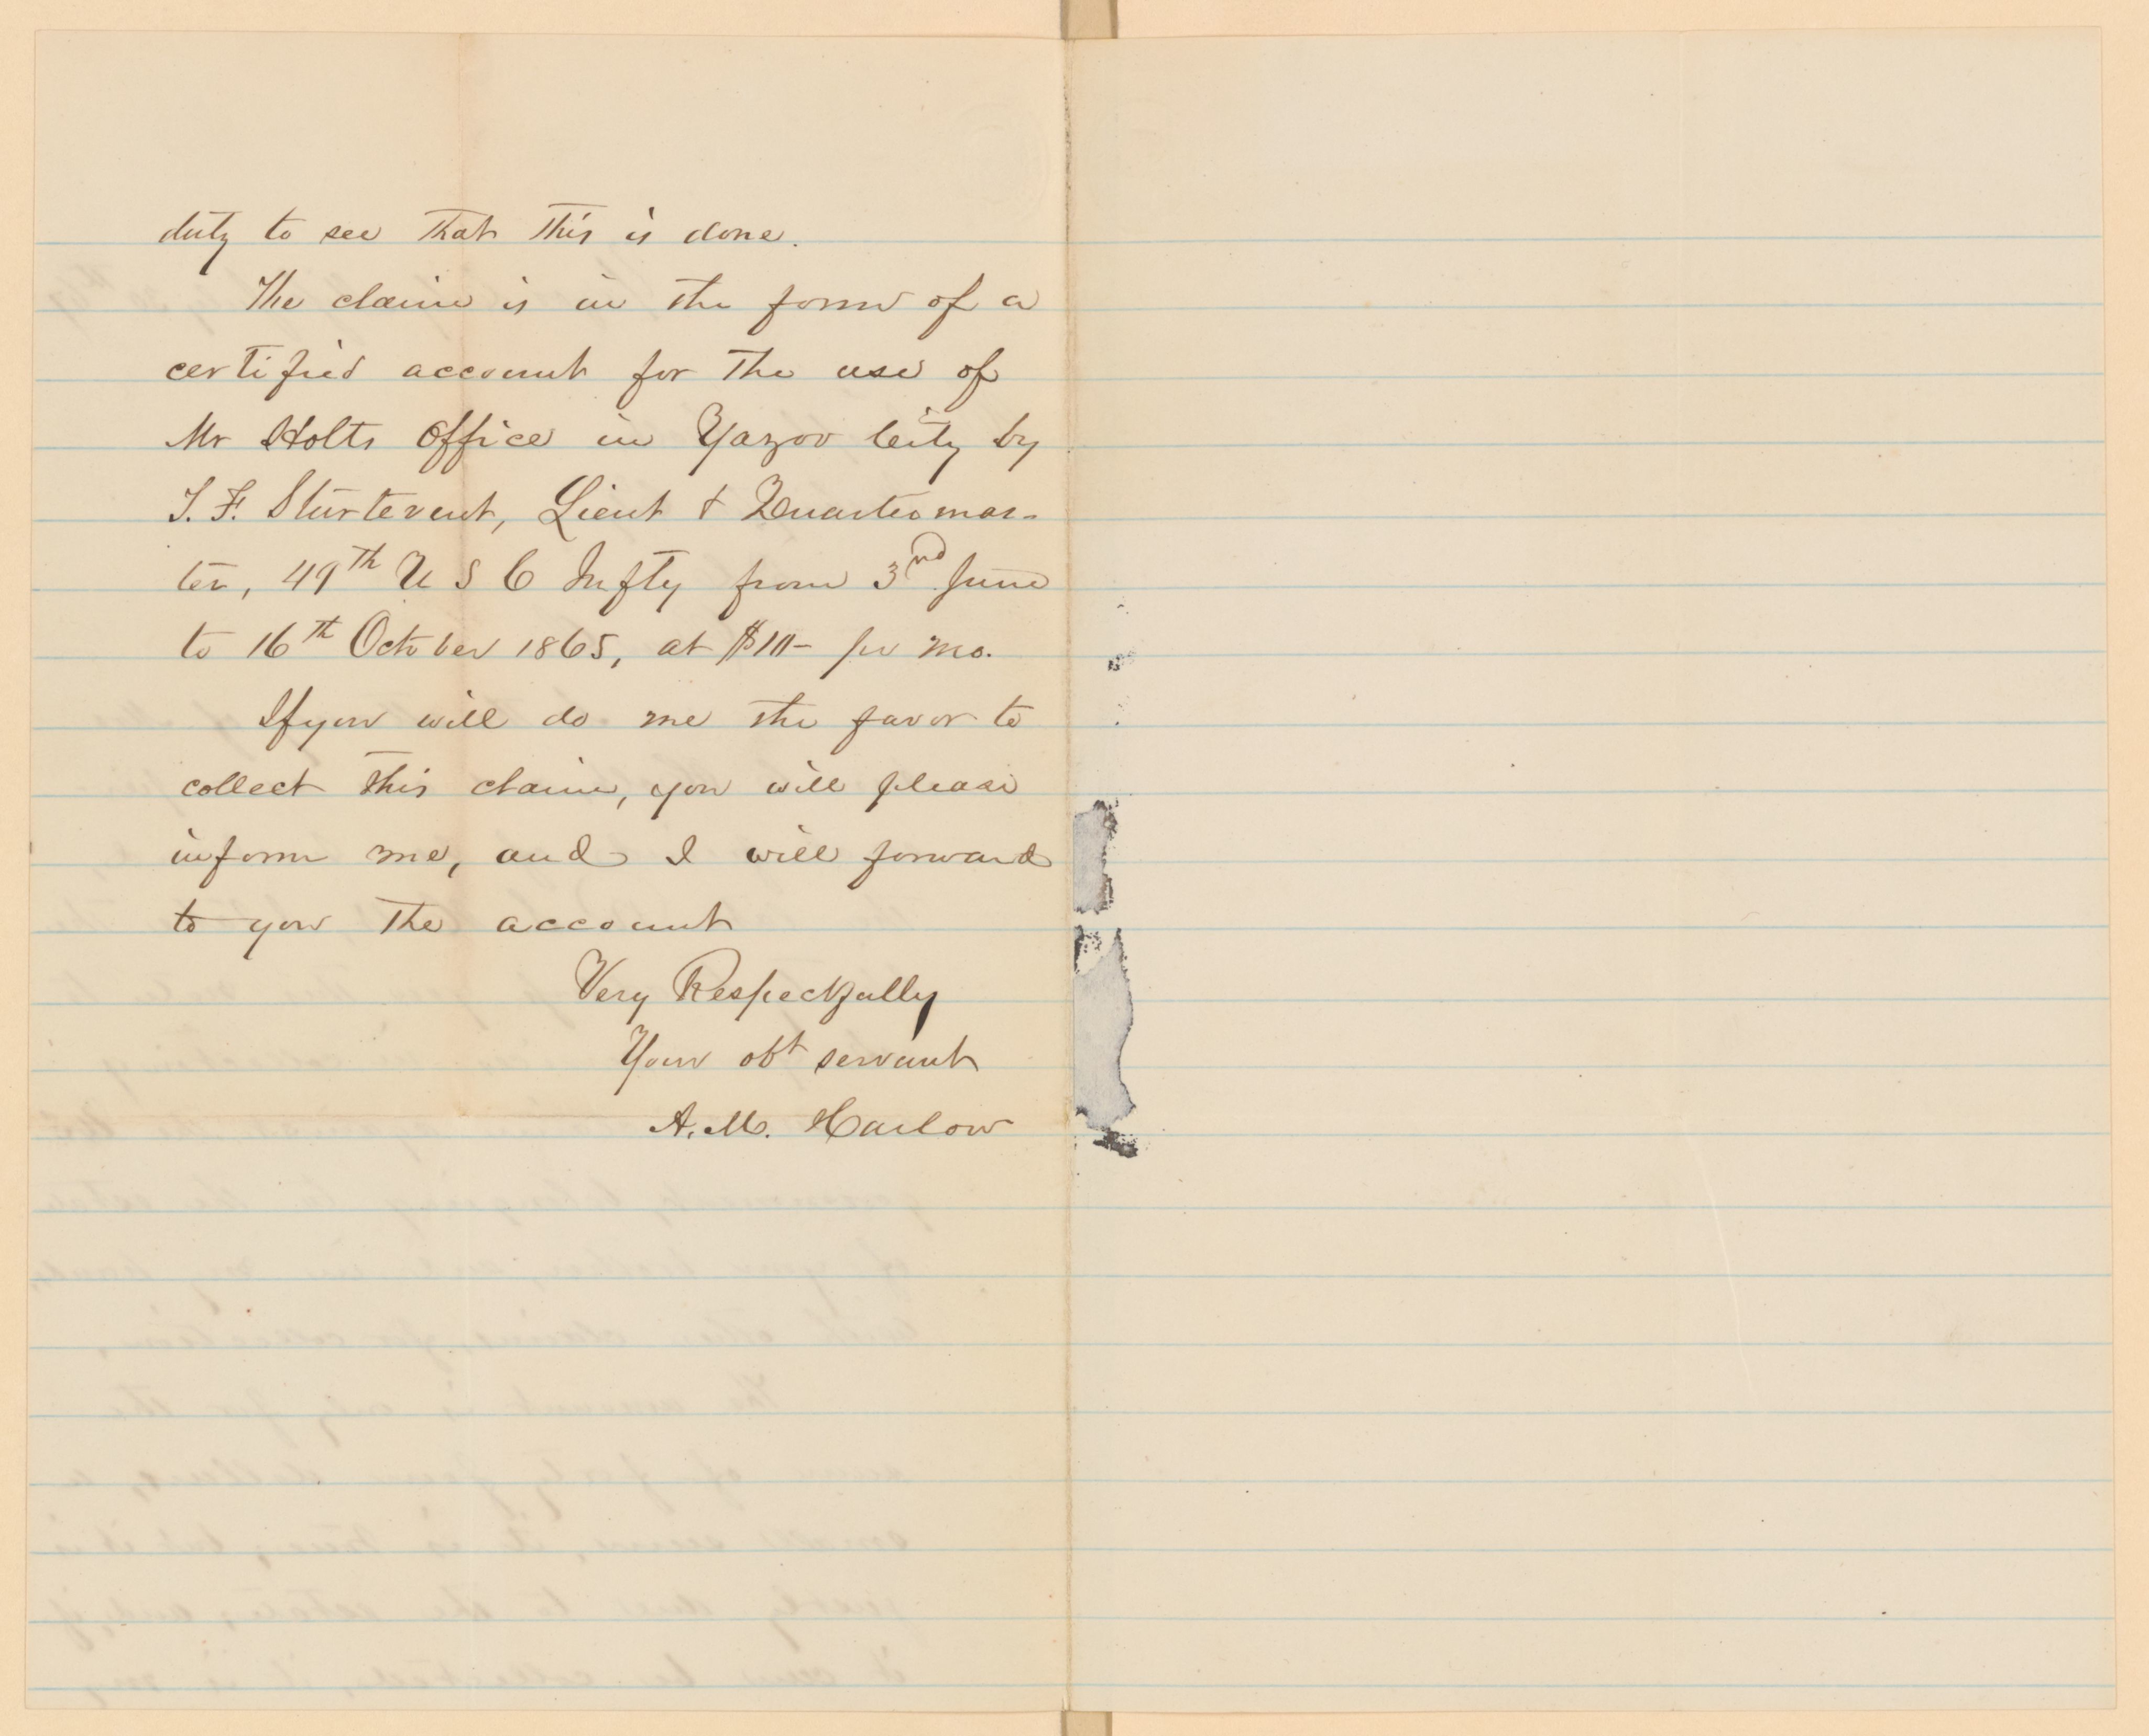 duty to see that this is done.
The claim is in the form of a
certified account for the use of
Mr Holts Office in Yazoo City by
T. F. Sturtevent, Lieut & Quartermas-
ter, 49th U S C Infty from 3nd June
to 16th October 1865, at $10- per mo.
If you will do me the favor to
collect this claim, you will please
inform me, and I will forward
to you the account
Very Respectfully
Your obt servant
A. M. Harlow